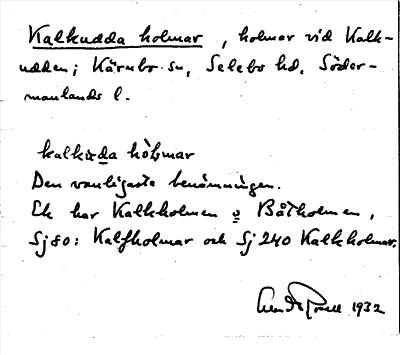 Kalkudda holmar, holmar vid Kalk-
udden; Kärnbo sn, Selebo hd, Söder-
manlands l.
kalkuda hòlmar
Den vanligaste benämningen.
Ek har Kalkholmen o Båtholmen,
Sj 80: Kalfholmar och Sj 240 Kalkholmar.
1932